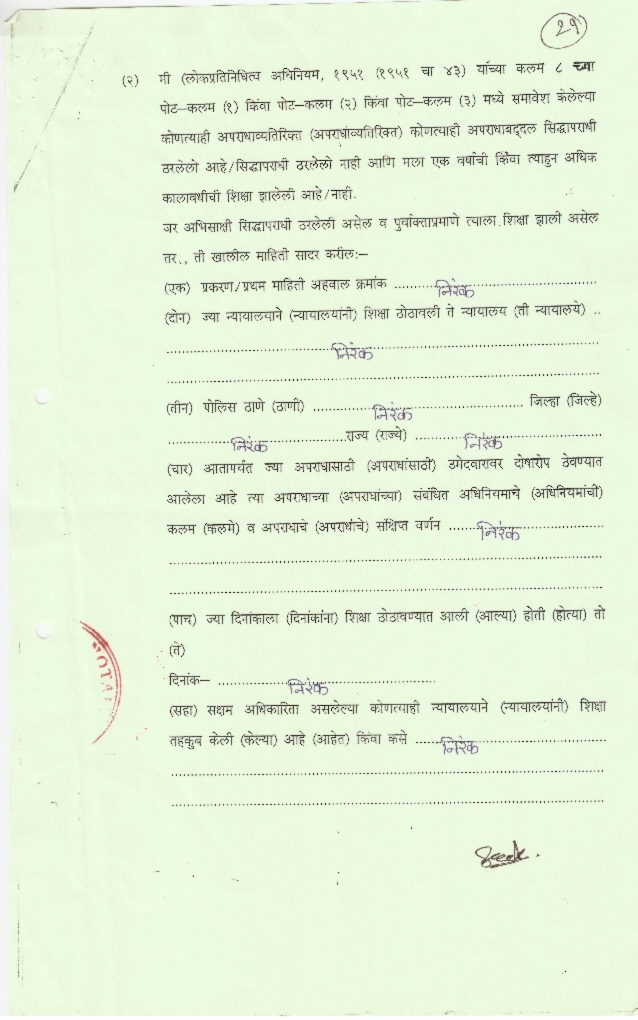 29
(२) मी (लोकप्रतिनिधित्व अधिनियम, १९५१ (१९५१ चा ४३) यांच्या कलम ८ च्या
पोट–कलम (१) किंवा पोट–कलम (२) किंवा पोट–कलम (३) मध्ये समावेश केलेल्या
कोणत्याही अपराधाव्यतिरिक्त (अपराधांव्यतिरिक्त) कोणत्याही अपराधाबद्दल सिद्धापराधी
ठरलेलो आहे/सिद्धापराधी ठरलेलो नाही आणि मला एक वर्षाची किंवा त्याहुन अधिक
कालावधीची शिक्षा झालेली आहे/नाही.
जर अभिसाक्षी सिद्धापराधी ठरलेली असेल व पुर्वोक्ताप्रमाणे त्याला शिक्षा झाली असेल
तर., ती खालील माहिती सादर करील:–
(एक) प्रकरण/प्रथम माहिती अहवाल क्रमांक .......... निरंक
(दोन) ज्या न्यायालयाने (न्यायालयांनी) शिक्षा ठोठावली ते न्यायालय (ती न्यायालये) ..
.......... निरंक ..........
..........
(तीन) पोलिस ठाणे (ठाणी) .......... निरंक .......... जिल्हा (जिल्हे)
.......... निरंक .......... राज्य (राज्ये) .......... निरंक ..........
(चार) आतापर्यत ज्या अपराधासाठी (अपराधांसाठी) उमेदवारावर दोषारोप ठेवण्यात
आलेला आहे त्या अपराधाच्या (अपराधांच्या) संबंधित अधिनियमाचे (अधिनियमांची)
कलम (कलमे) व अपराधाचे (अपराधांचे) संक्षिप्त वर्णन .......... निरंक
..........
..........
(पाच) ज्या दिनांकाला (दिनांकांना) शिक्षा ठोठावण्यात आली (आल्या) होती (होत्या) तो
(ते)
दिनांक– .......... निरंक ..........
(सहा) सक्षम अधिकारिता असलेल्या कोणत्याही न्यायालयाने (न्यायालयांनी) शिक्षा
तहकुब केली (केल्या) आहे (आहेत) किंवा कसे .......... निरंक
..........
..........
NOTA